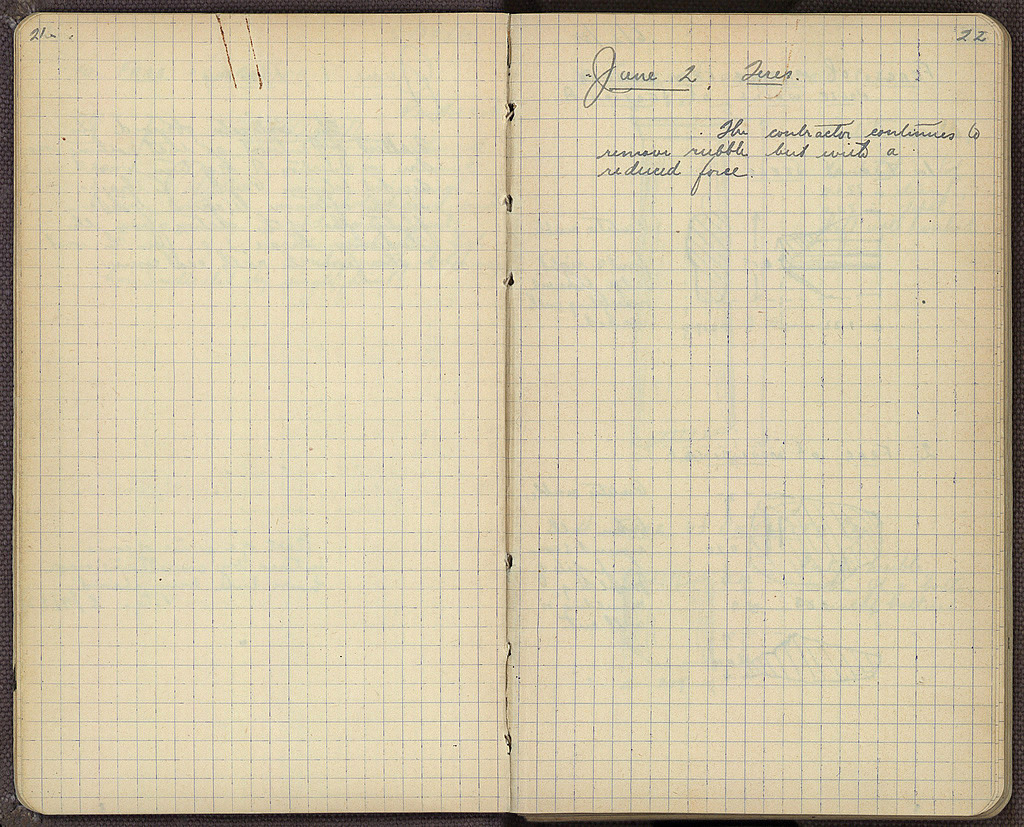 21
22
June 2. Tues.
The contractor continues to
remove rubble but with a
reduced force.